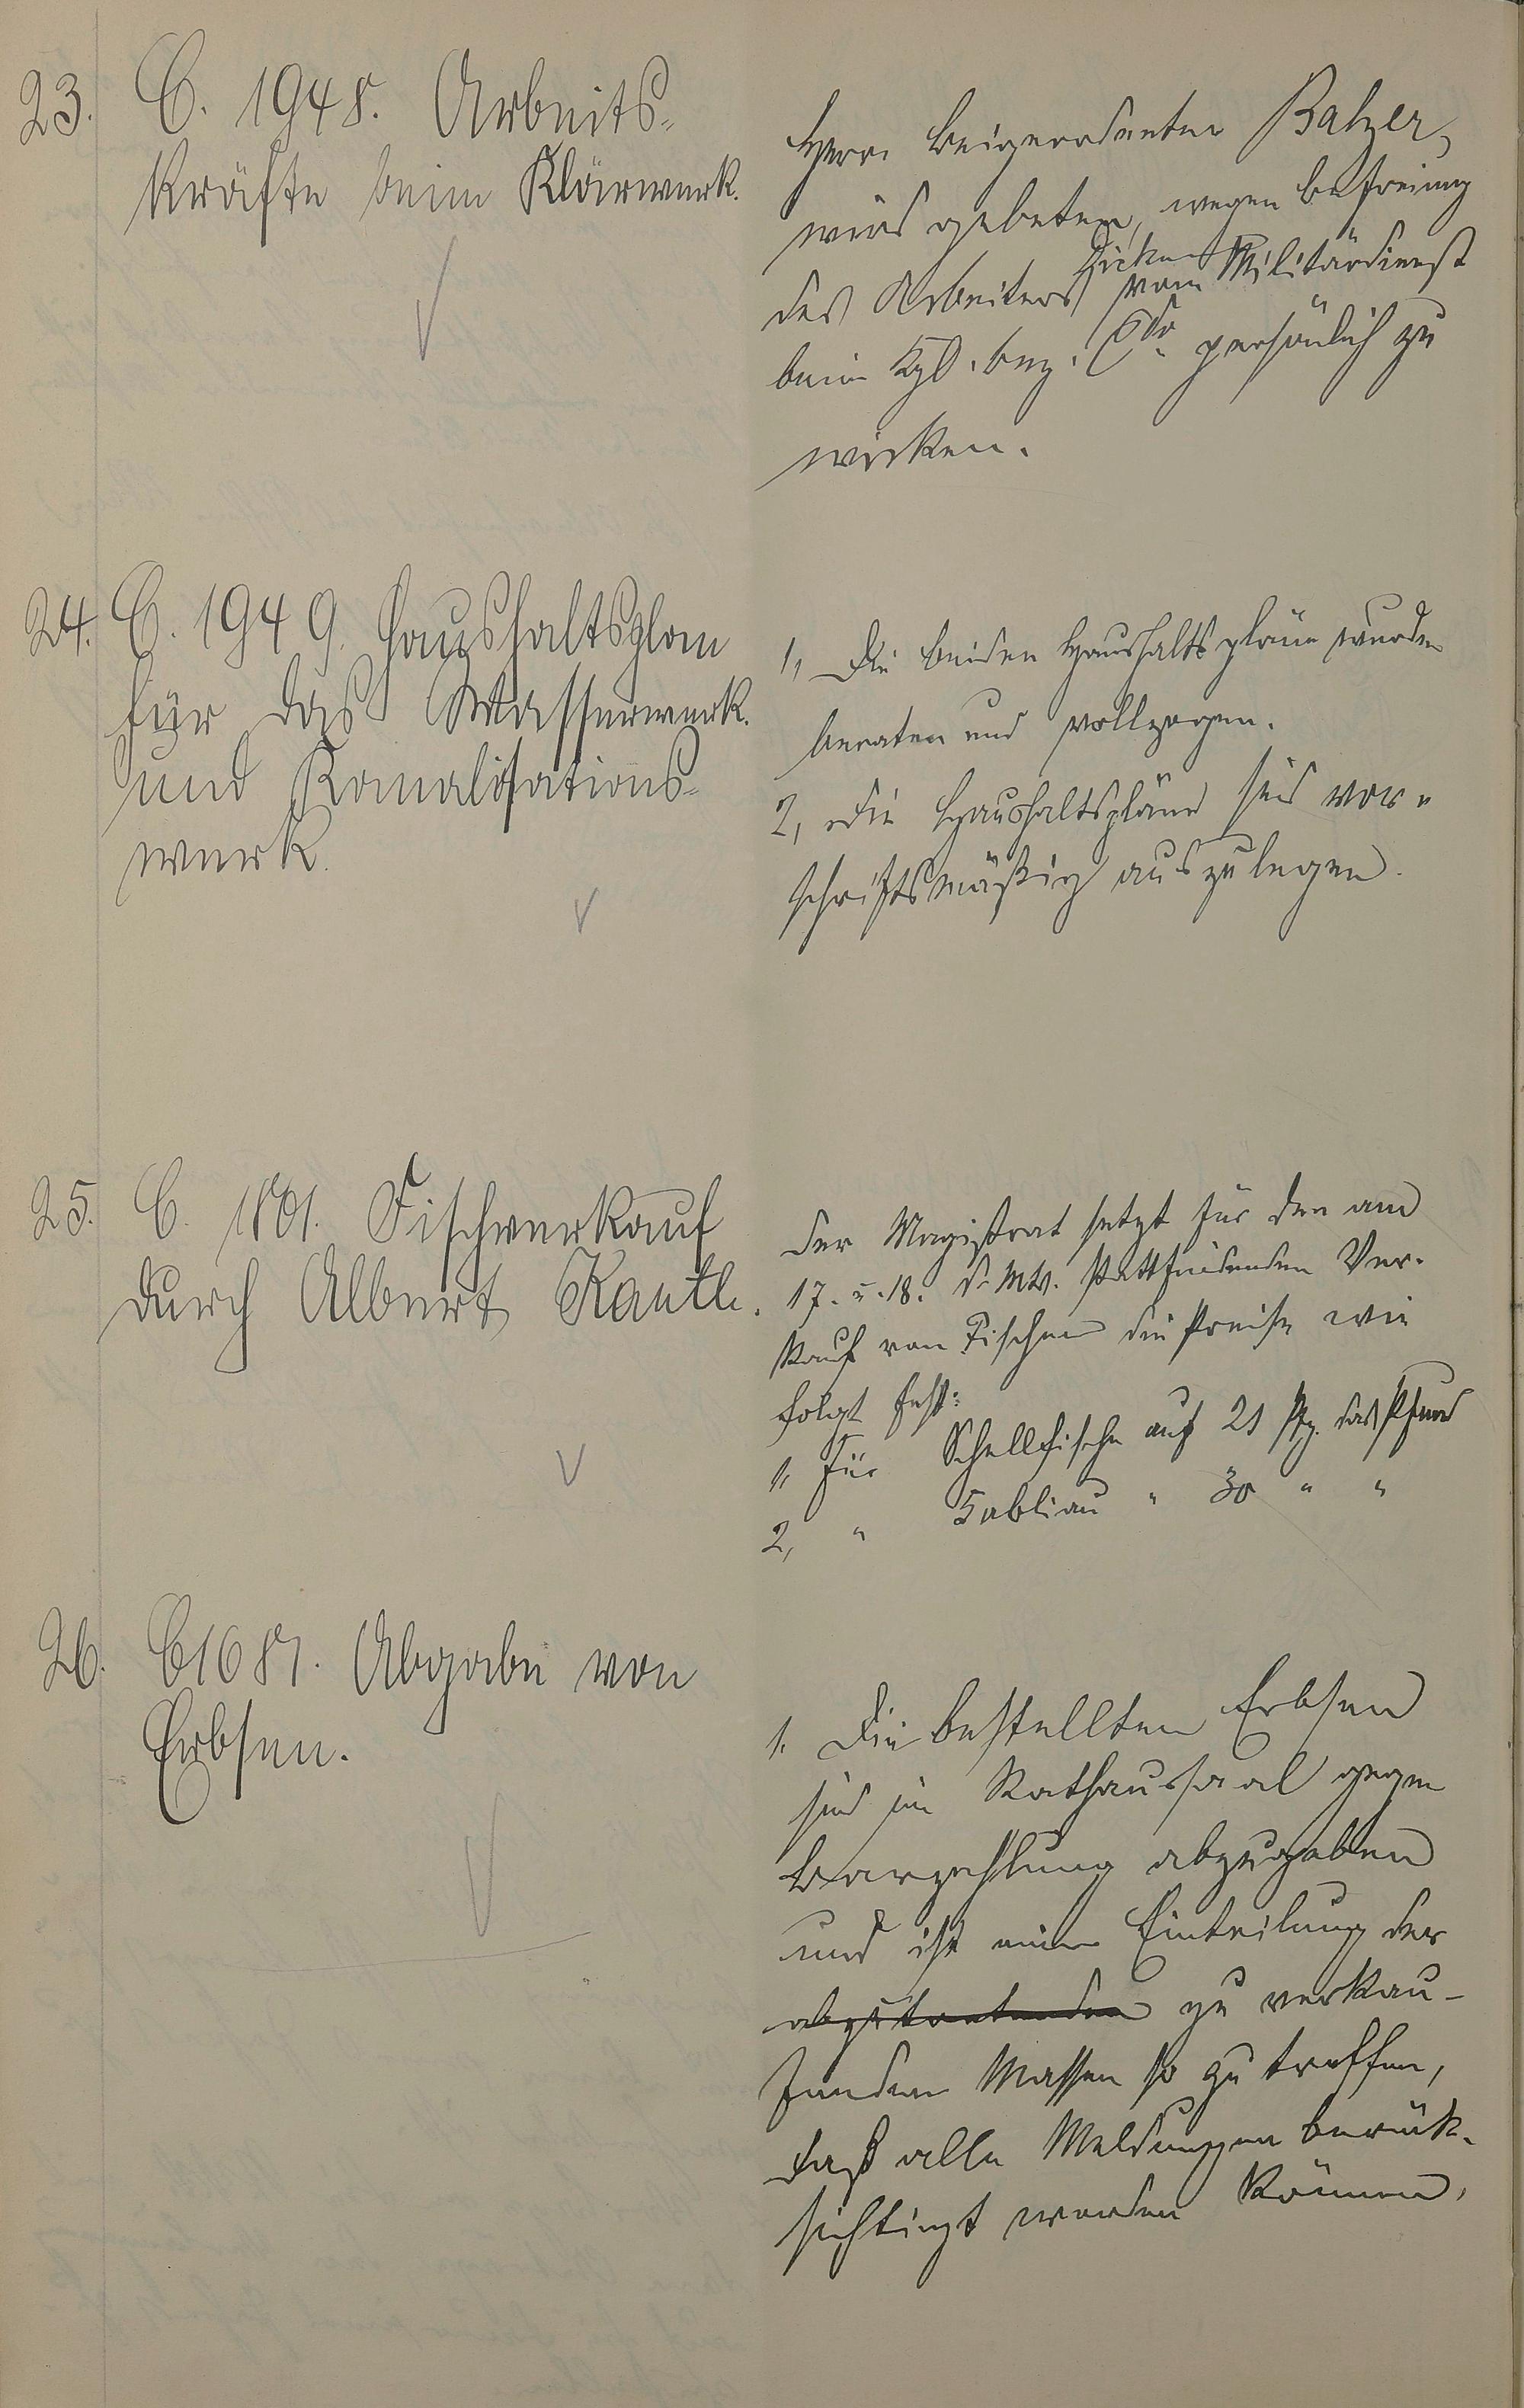 23. C. 1948. Arbeits-
Kräfte beim Klärwerk.
Herr Beigeordneter Balzer,
wird gebeten, wegen Befreiung
des Arbeiters vom Militärdienst
beim Kgl. Bez. Cdo. persönlich zu
wirken.
24. C. 1949. Haushaltsplan
für das Wasserwerk.
und Kanalisations-
werk.
1, Die beiden Haushaltspläne wurden
beraten und vollzogen.
2, Die Haushaltspläne sind vor-
schriftsmäßig auszulegen.
25. C. 1801. Fischverkauf
durch Albert Kauth.
Der Magistrat setzt für den am
17. u. 18. d. Mts. stattfindenden Ver-
kauf von Fischen die Preise wie
folgt fest:
1, Für Schellfische auf 21 Pfg. das Pfund
2, " Kabliau " 30 " "
26. C 1687. Abgabe von
Erbsen.
1. Die bestellten Erbsen
sind im Rathaussaal gegen
Barzahlung abzugeben
und ist eine Einteilung der
abzutretenden zu verkau-
fenden Massen so zu treffen,
daß alle Meldungen berück-
sichtigt werden können.